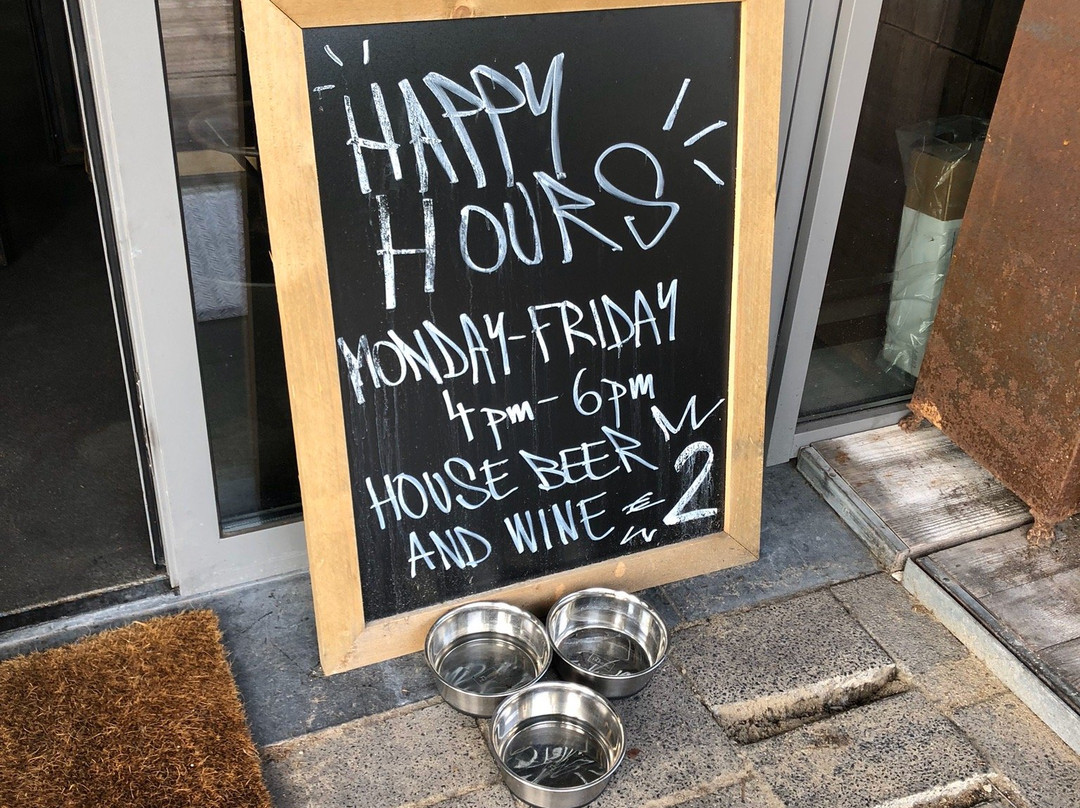 HAPPY
HOURS
MONDAY-FRIDAY
4pm-6pm
HOUSE BEER
AND WINE 2